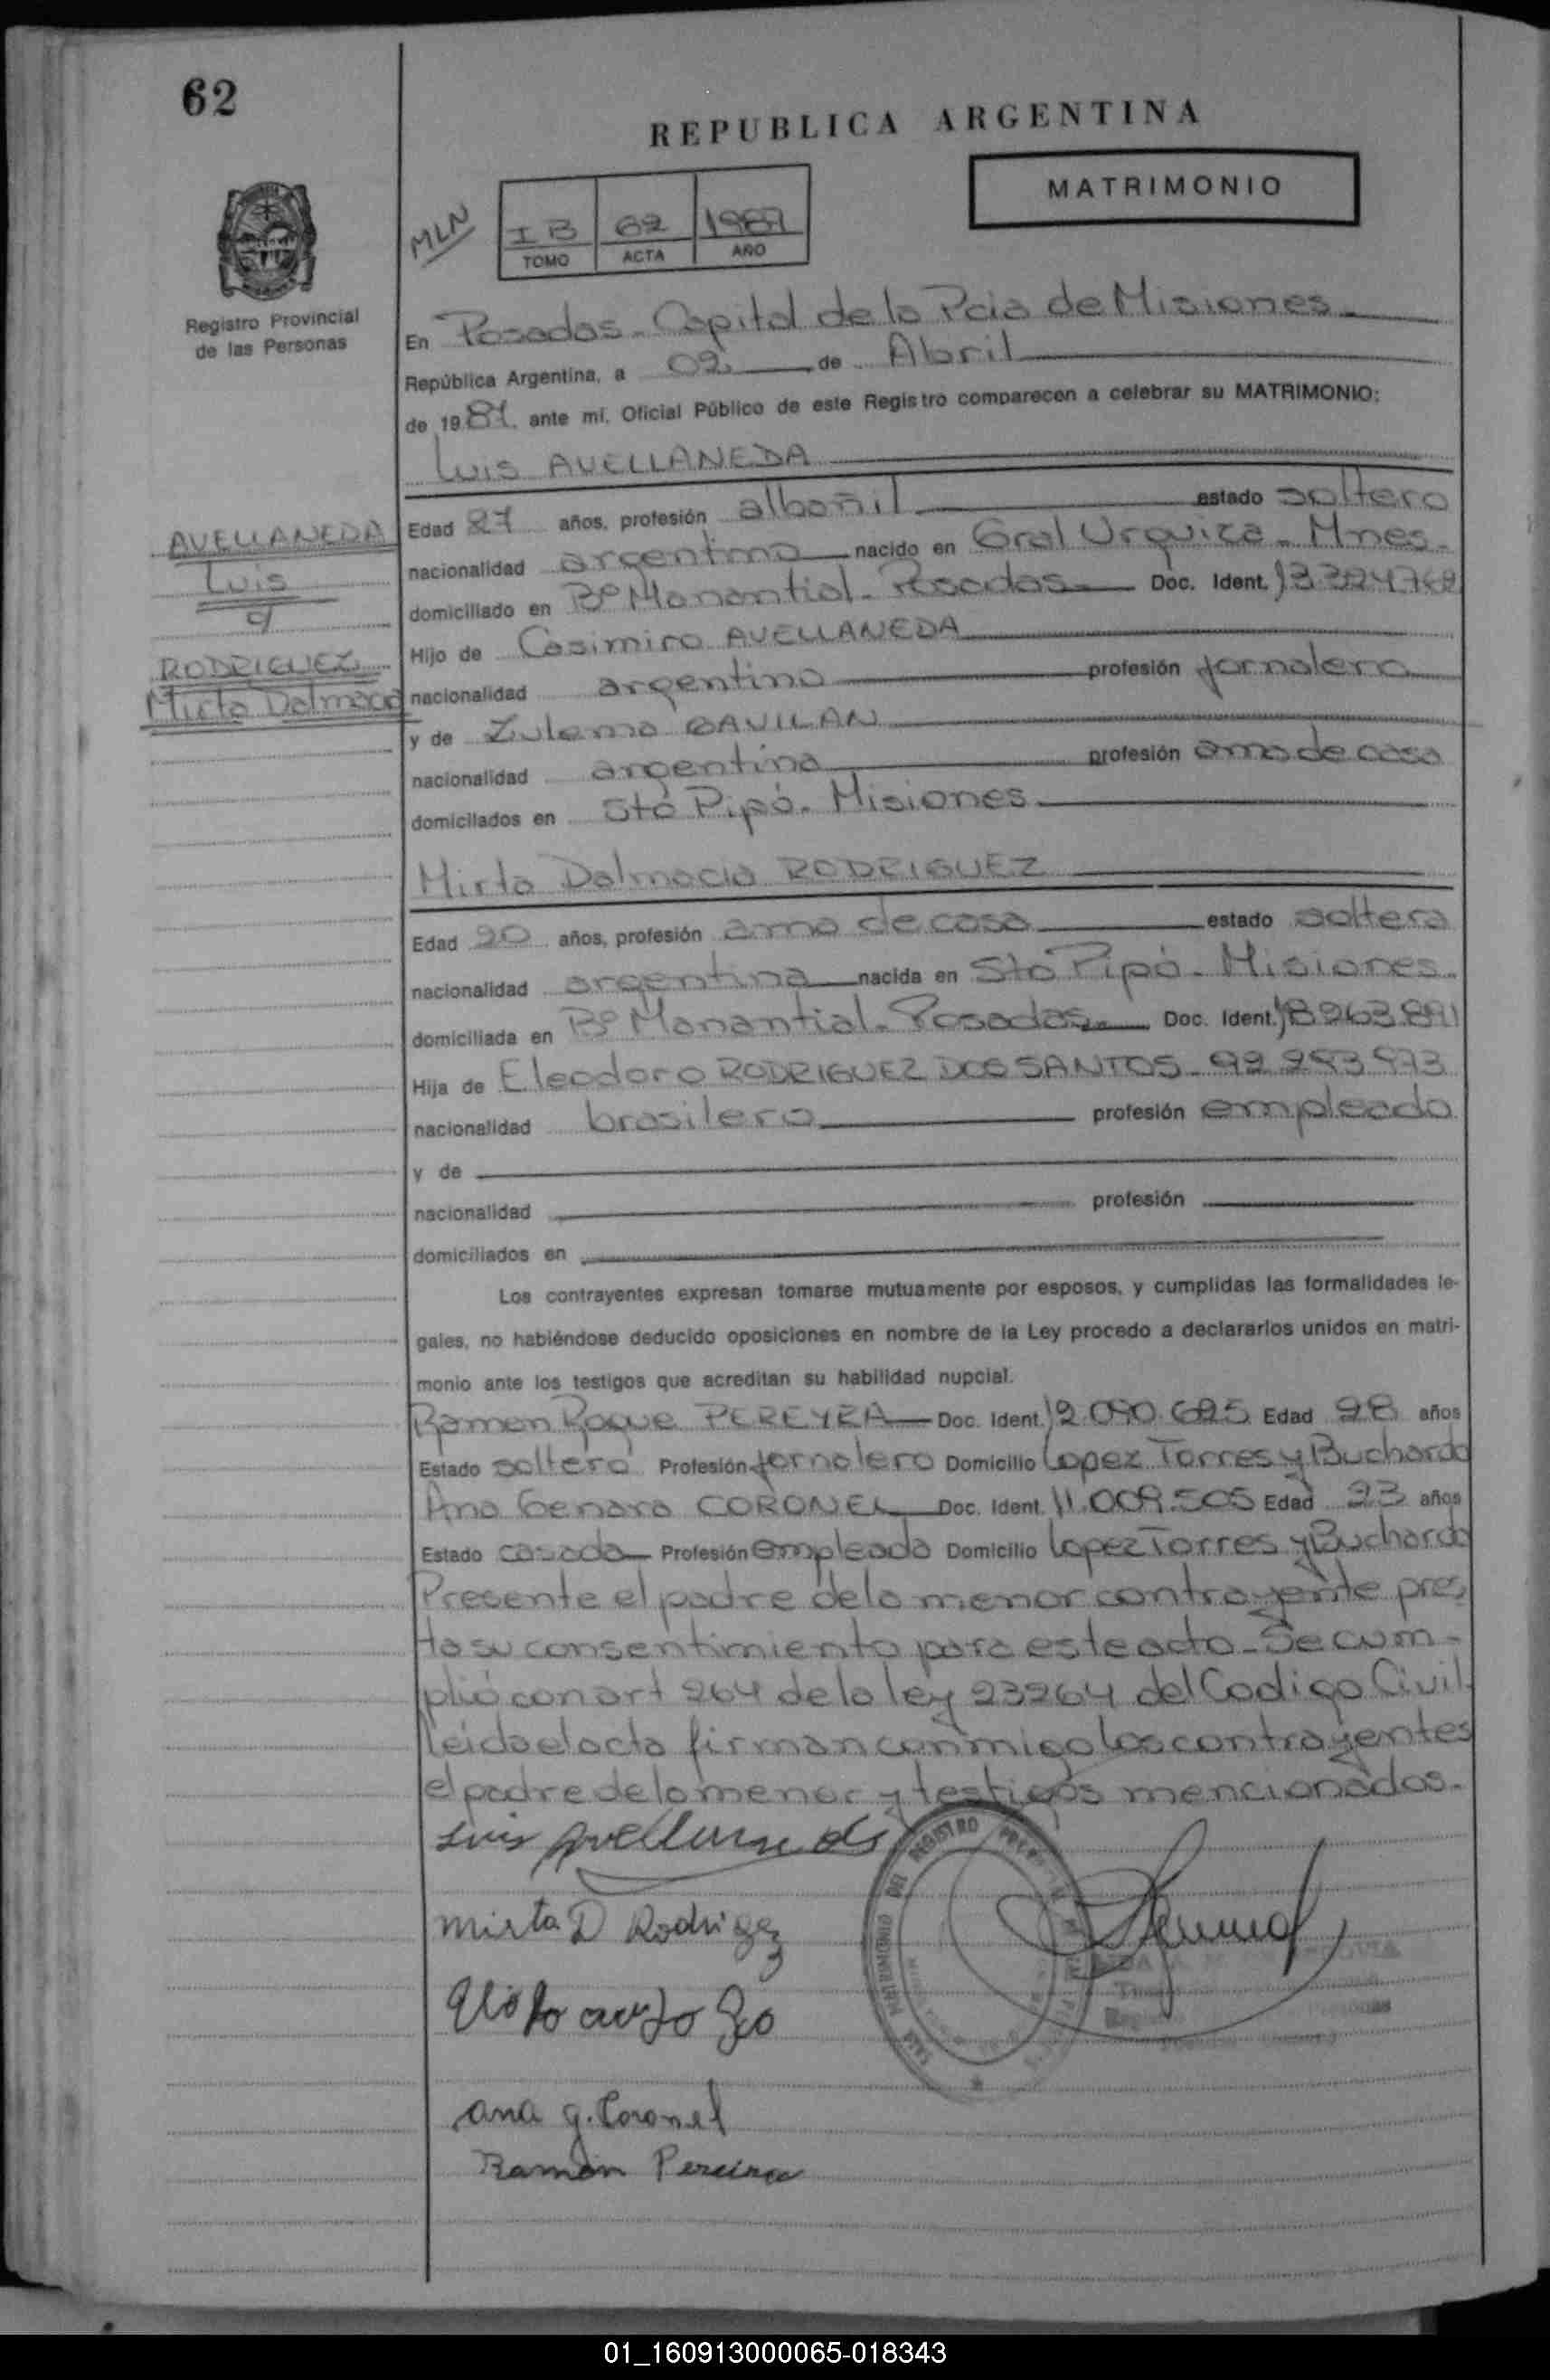 62
REPUBLICA ARGENTINA
MATRIMONIO
MLN
I B 62 1987
TOMO ACTA AÑO
Registro Provincial
de las Personas
En Posadas - Capital de la Pcia de Misiones
República Argentina, a 02 de Abril
de 1987. ante mí, Oficial Público de este Registro comparecen a celebrar su MATRIMONIO:
Luis AVELLANEDA
AVELLANEDA
Luis
RODRIGUEZ
Mirta Dalmacia
Edad 27 años, profesión albañil estado soltero
nacionalidad argentina nacido en Gral Urquiza - Mnes -
domiciliado en Bº Manantial - Posadas Doc. Ident.
Hijo de Casimiro AVELLANEDA
nacionalidad argentina profesión jornalero
y de Zulema GAVILAN
nacionalidad argentina profesión ama de casa
domicilados en Sto Pipó - Misiones
Mirta Dalmacia RODRIGUEZ
Edad 20 años, profesión ama de casa estado soltera
nacionalidad argentina nacida en Sto Pipó - Misiones
domiciliada en Bº Manantial - Posadas Doc. Ident. 18263891
Hija de Eleodoro RODRIGUEZ DOS SANTOS -
nacionalidad brasilero profesión empleado
y de
nacionalidad profesión
domiciliados en
Los contrayentes expresan tomarse mutuamente por esposos, y cumplidas las formalidades le-
gales, no habiéndose deducido oposiciones en nombre de la Ley procedo a declararlos unidos en matri-
monio ante los testigos que acreditan su habilidad nupcial.
Ramon Roque PEREYRA Doc. Ident. 12.090.625 Edad 28 años
Estado soltero Profesión jornalero Domicilio Lopez Torres y Buchardo
Ana Genara CORONEL Doc. Ident. 11.009.505 Edad 23 años
Estado casada Profesión empleada Domicilio Lopez Torres y Buchardo
Presente el padre de la menor contrayente pres
ta su consentimiento para este acto - Se cum -
plió con art 264 de la ley 23264 del Codigo Civil.
Leida el acta firman conmigo los contrayentes
el padre de la menor y testigos mencionados -
Luis Avellaneda
Mirta D Rodrigez
ana g. Coronel
Ramon Pereira
01_160913000065-018343